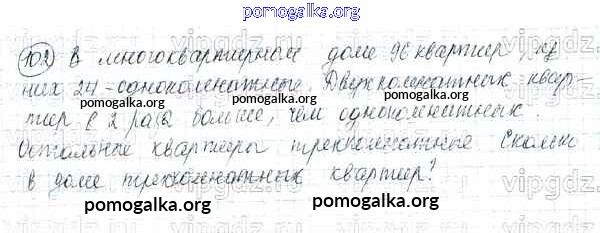 pomogalka.org
102) В многоквартирном доме 96 квартир, из
них 24 - однокомнатные. Двухкомнатных квар-
pomogalka.org pomogalka.org
тир в 2 раза больше, чем однокомнатных.
Остальные квартиры трехкомнатные Сколько
в доме трехкомнатных квартир?
vipgdz. vipgdz.com vipgdz.com
pomogalka.org pomogalka.org